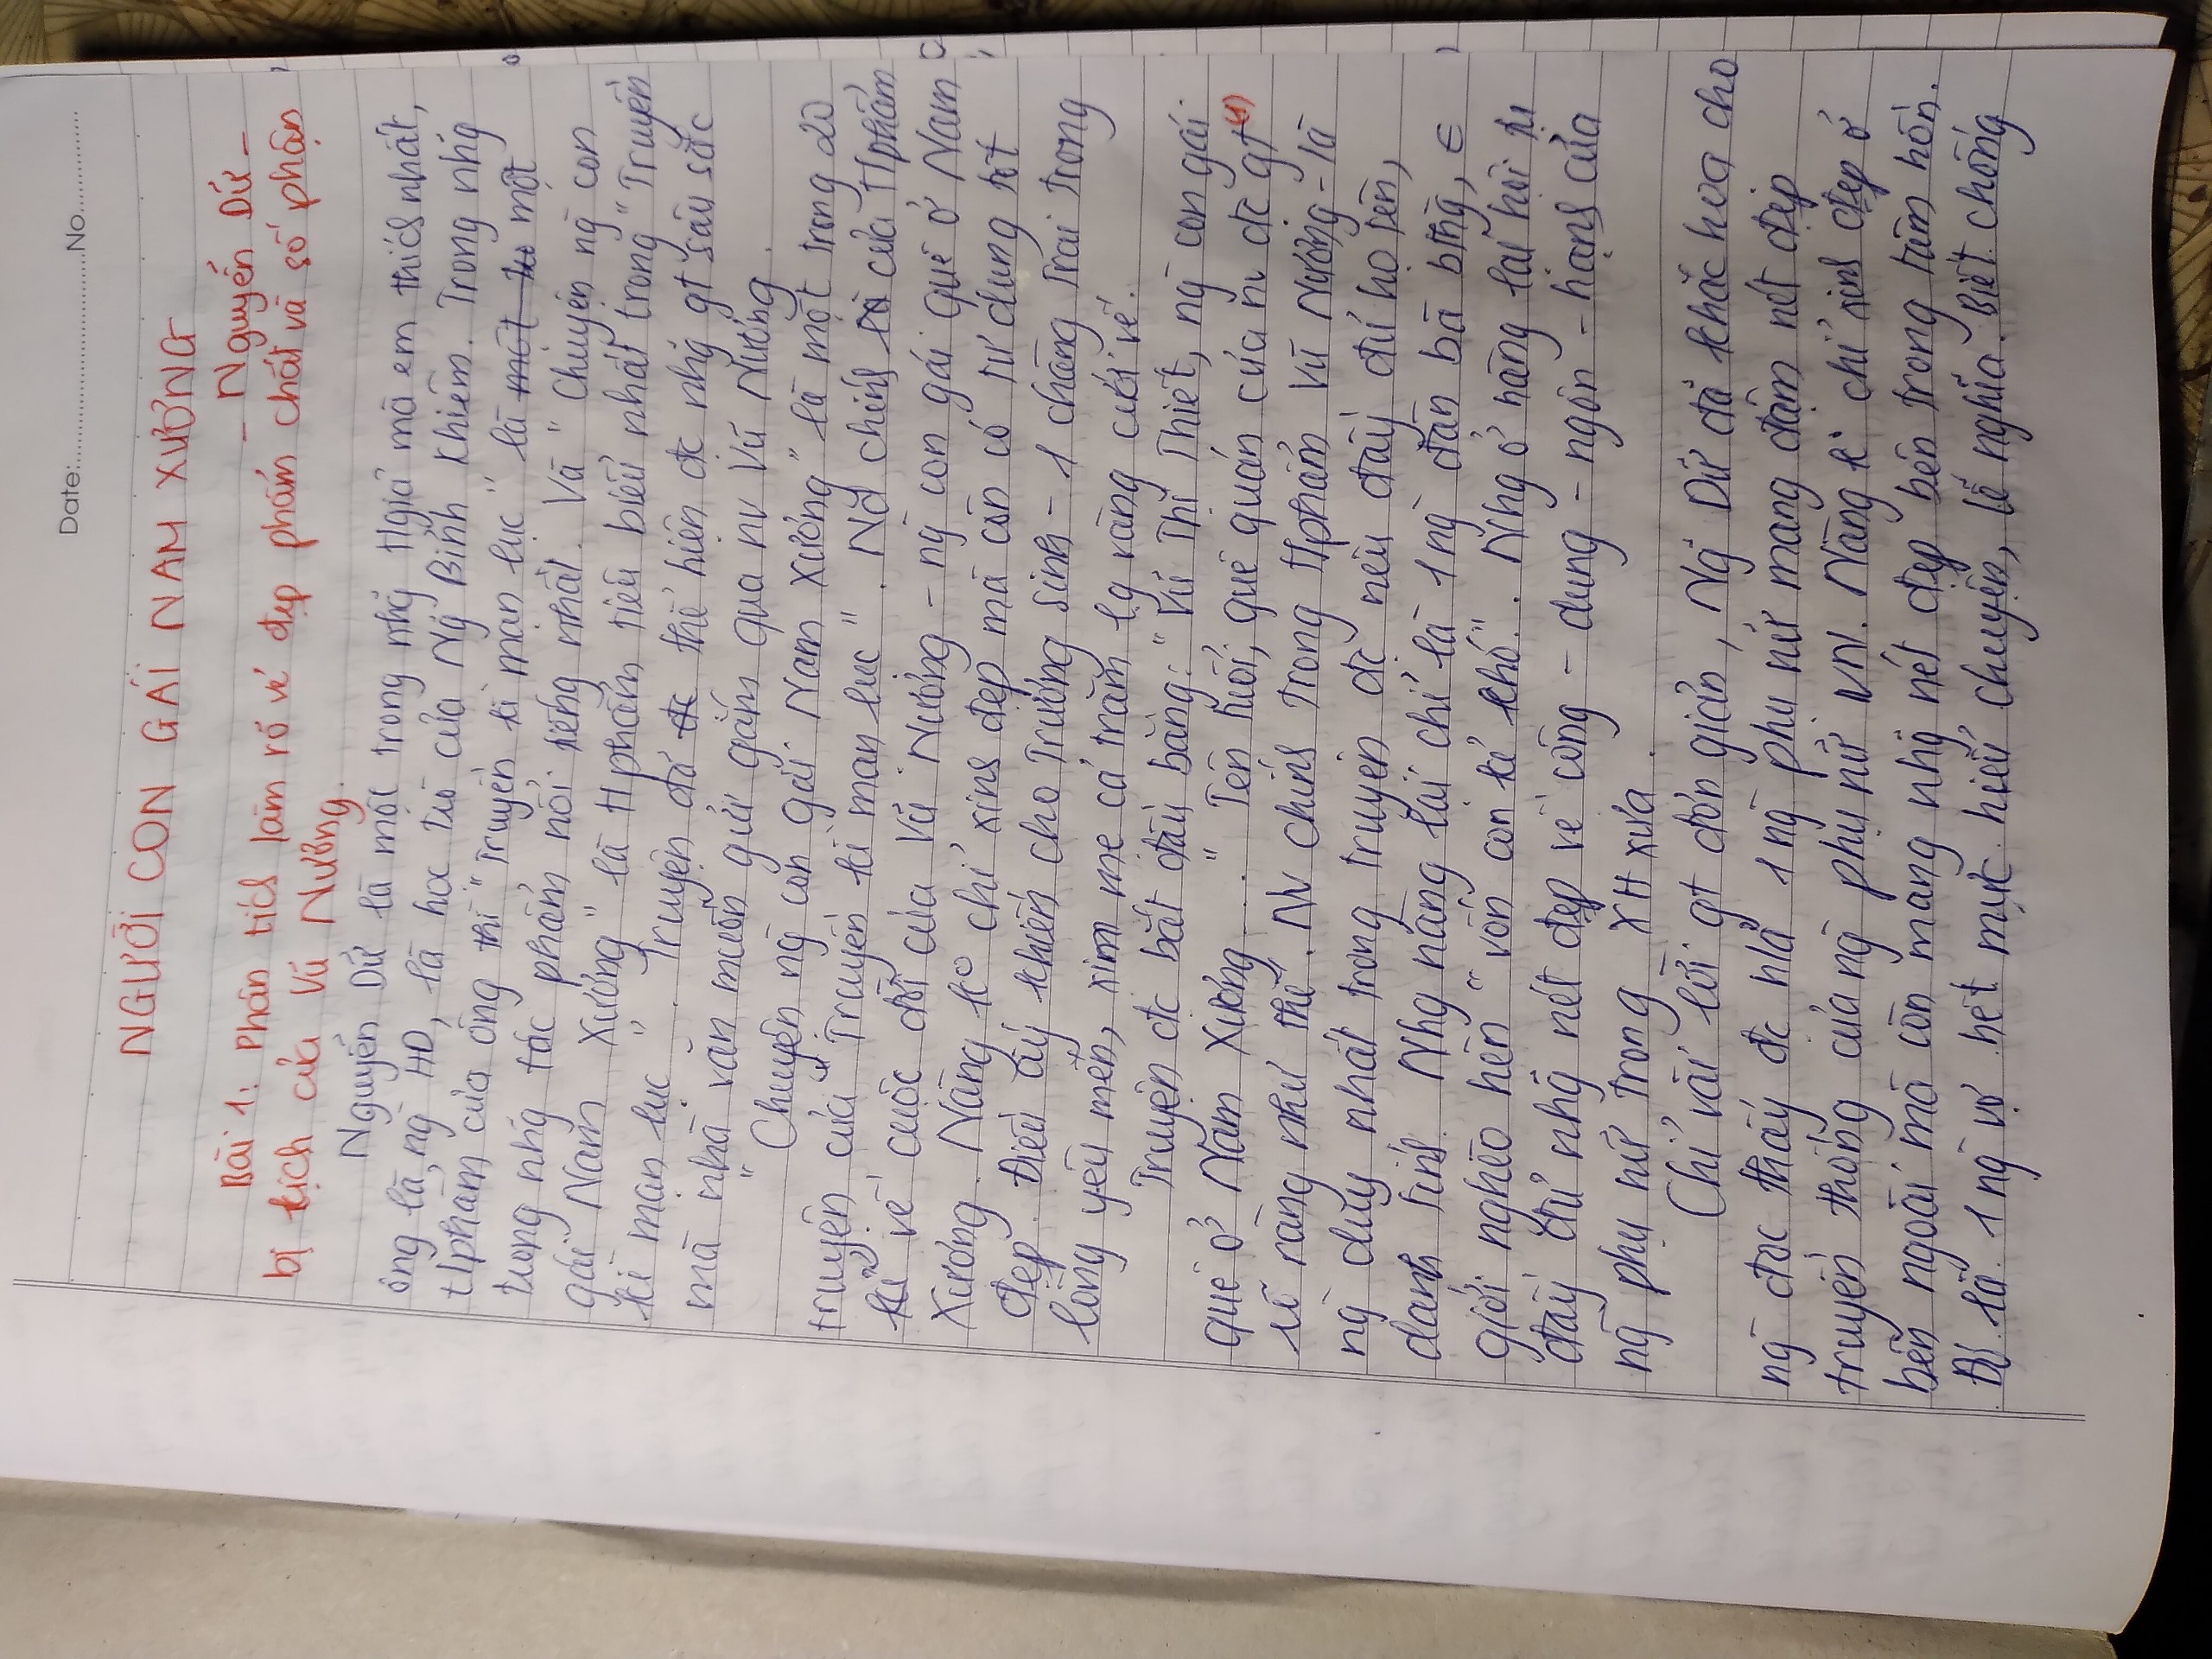 Date:..............................No..................
NGƯỜI CON GÁI NAM XƯƠNG
- Nguyễn Dữ -
Bài 1: Phân tích làm rõ vẻ đẹp phẩm chất và số phận
bi kịch của Vũ Nương.
Nguyễn Dữ là một trong nhg tgiả mà em thích nhất,
ông là ng HD, là học trò của Ng Bỉnh Khiêm. Trong nhg
tphẩm của ông thì "Truyền kì mạn lục" là một
trong nhg tác phẩm nổi tiếng nhất. Và "Chuyện ng con
gái Nam Xương" là tphẩm tiêu biểu nhất trong "Truyền
kì mạn lục". Truyện đã thể hiện đc nhg gt sâu sắc
mà nhà văn muốn gửi gắm qua nv Vũ Nương.
"Chuyện ng con gái Nam Xương" là một trong 20
truyện của "Truyền kì mạn lục". Nd chính của tphẩm
kể về cuộc đời của Vũ Nương - ng con gái quê ở Nam
Xương. Nàng ko chỉ xinh đẹp mà còn có tư dung tốt
đẹp. Điều ấy khiến cho Trương Sinh - 1 chàng trai trong
làng yêu mến, xin mẹ cả trăm lạng vàng cưới về.
Truyện đc bắt đầu bằng: "Vũ Thị Thiết, ng con gái
quê ở Nam Xương ...". Tên tuổi, quê quán của nv đc gt (1)
rõ ràng như thế. Nv chính trong tphẩm Vũ Nương - là
ng duy nhất trong truyện đc nêu đầy đủ họ tên,
danh tính. Nhg nàng lại chỉ là 1 ng đàn bà bthg, ∈
giới nghèo hèn "vốn con kẻ khó". Nhg ở nàng lại hội tụ
đầy đủ nhg nét đẹp về công - dung - ngôn - hạnh của
ng phụ nữ trong XH xưa.
Chỉ vài lời gt đơn giản, Ng Dữ đã khắc họa cho
ng đọc thấy đc h/ả 1 ng phụ nữ mang đậm nét đẹp
truyền thống của ng phụ nữ VN. Nàng k chỉ xinh đẹp ở
bên ngoài mà còn mang nhg nét đẹp bên trong tâm hồn.
Đó là 1 ng vợ hết mực hiểu chuyện, lễ nghĩa. Biết chồng